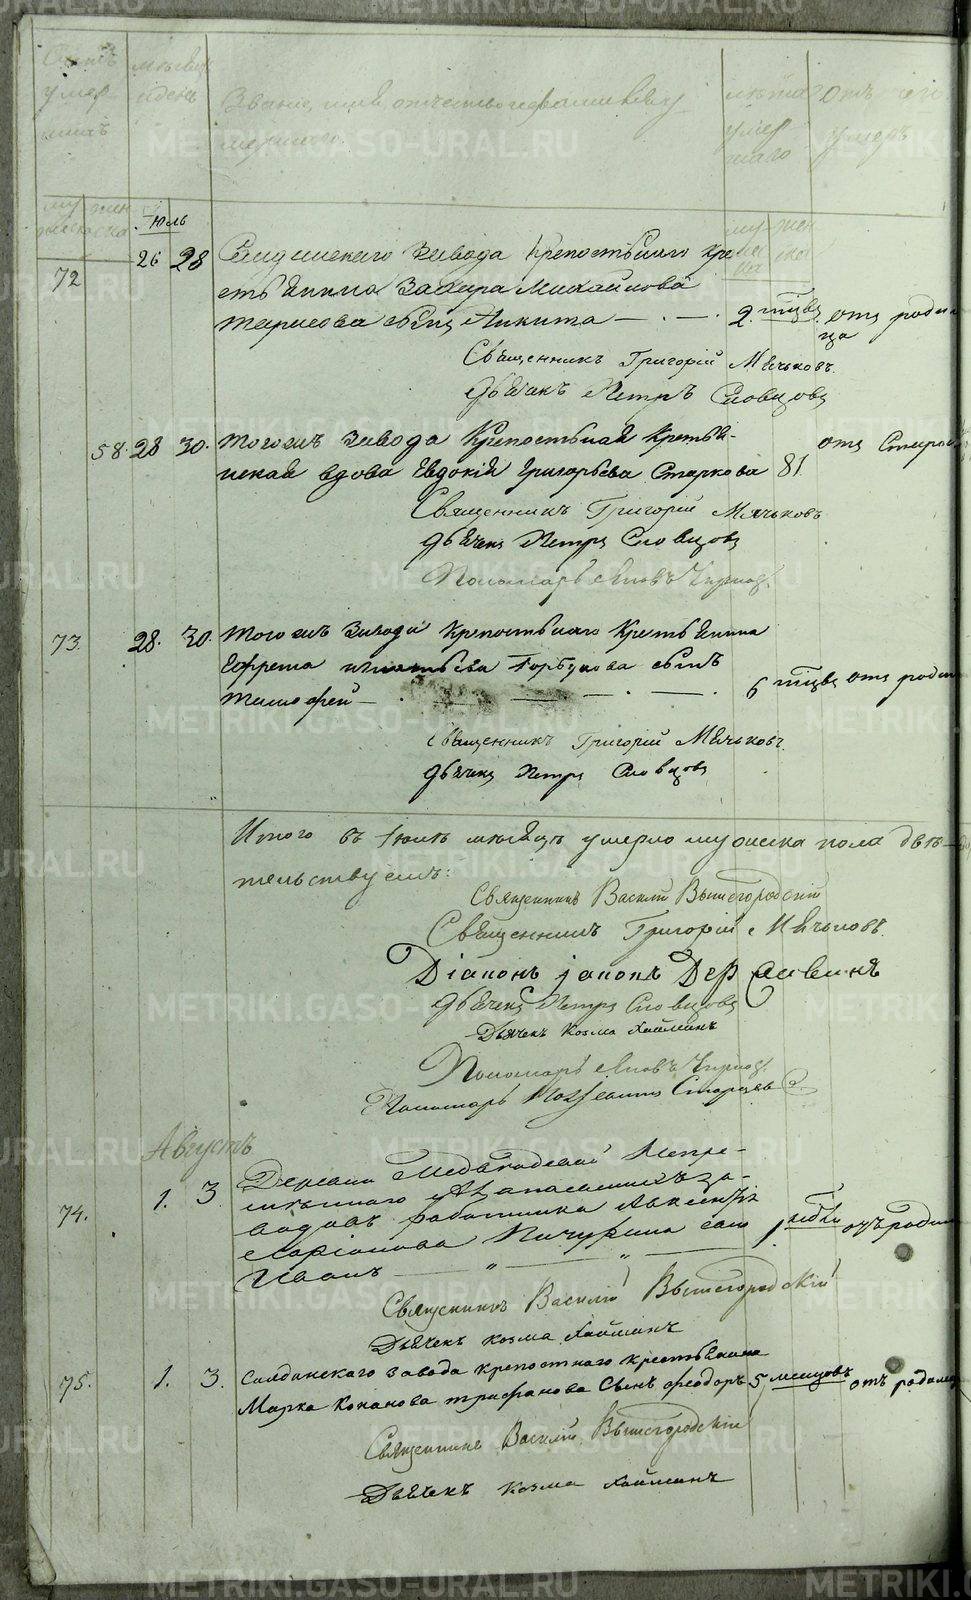 Счетъ умершихъ
мѣсяцъ и день
Званіе, имя, отчество и фамилія
умершаго
лѣта умершаго
отъ чего умеръ
Іюль
72 26 28 Салдинскаго Завода Крепостьнаго Кре
стьянина Захара Михайлова
сынъ Никита — · — · 2. мцвъ. отъ роди
ца
Священникъ Григорій Мячьковъ.
Дьячекъ Петръ Словцовъ
58. 28 30. Тогожъ Завода Крепостьная Крестья-
нская вдова Евдокія Григорьева Старкова 81. отъ Старос
Священникъ Григорій Мячьковъ
Дьячекъ Петръ Словцовъ
Пономарь Яковъ
73. 28. 30. Тогожъ Завода Крепостьнаго Крестьянина
Ефрема Горбунова сынъ
Тимофей — · — · — · 6 мцвъ отъ родим
Священникъ Григорій Мячьковъ.
Дьячекъ Петръ Словцовъ
Итого въ Іюлѣ мѣсяцѣ умерло мужеска пола
тельствуемъ:
Священникъ Василій Вышегородскій
Священникъ Григорій Мячьковъ.
Діаконъ Іаковъ Державинъ
Дьячекъ Петръ Словцовъ
Дьячекъ Козма Хайминъ
Пономарь Яковъ
Пономарь Старцевъ
Августъ
74. 1. 3. Деревни Медведевой Непре-
меннаго за-
водовъ работника
Ларіонова Пичугина сынъ 1 отъ родим
Иванъ — " — " —
Священникъ Василій Вышегородскій
Дьячекъ Козма Хайминъ
75. 1. 3. Салдинскаго Завода крепостнаго крестьянина
Марка Конанова Трифанова Сынъ Феодоръ 5 месецовъ отъ родимца
Священникъ Василій Вышегородскій
Дьячекъ Козма Хайминъ
METRIKI.GASO-URAL.RU